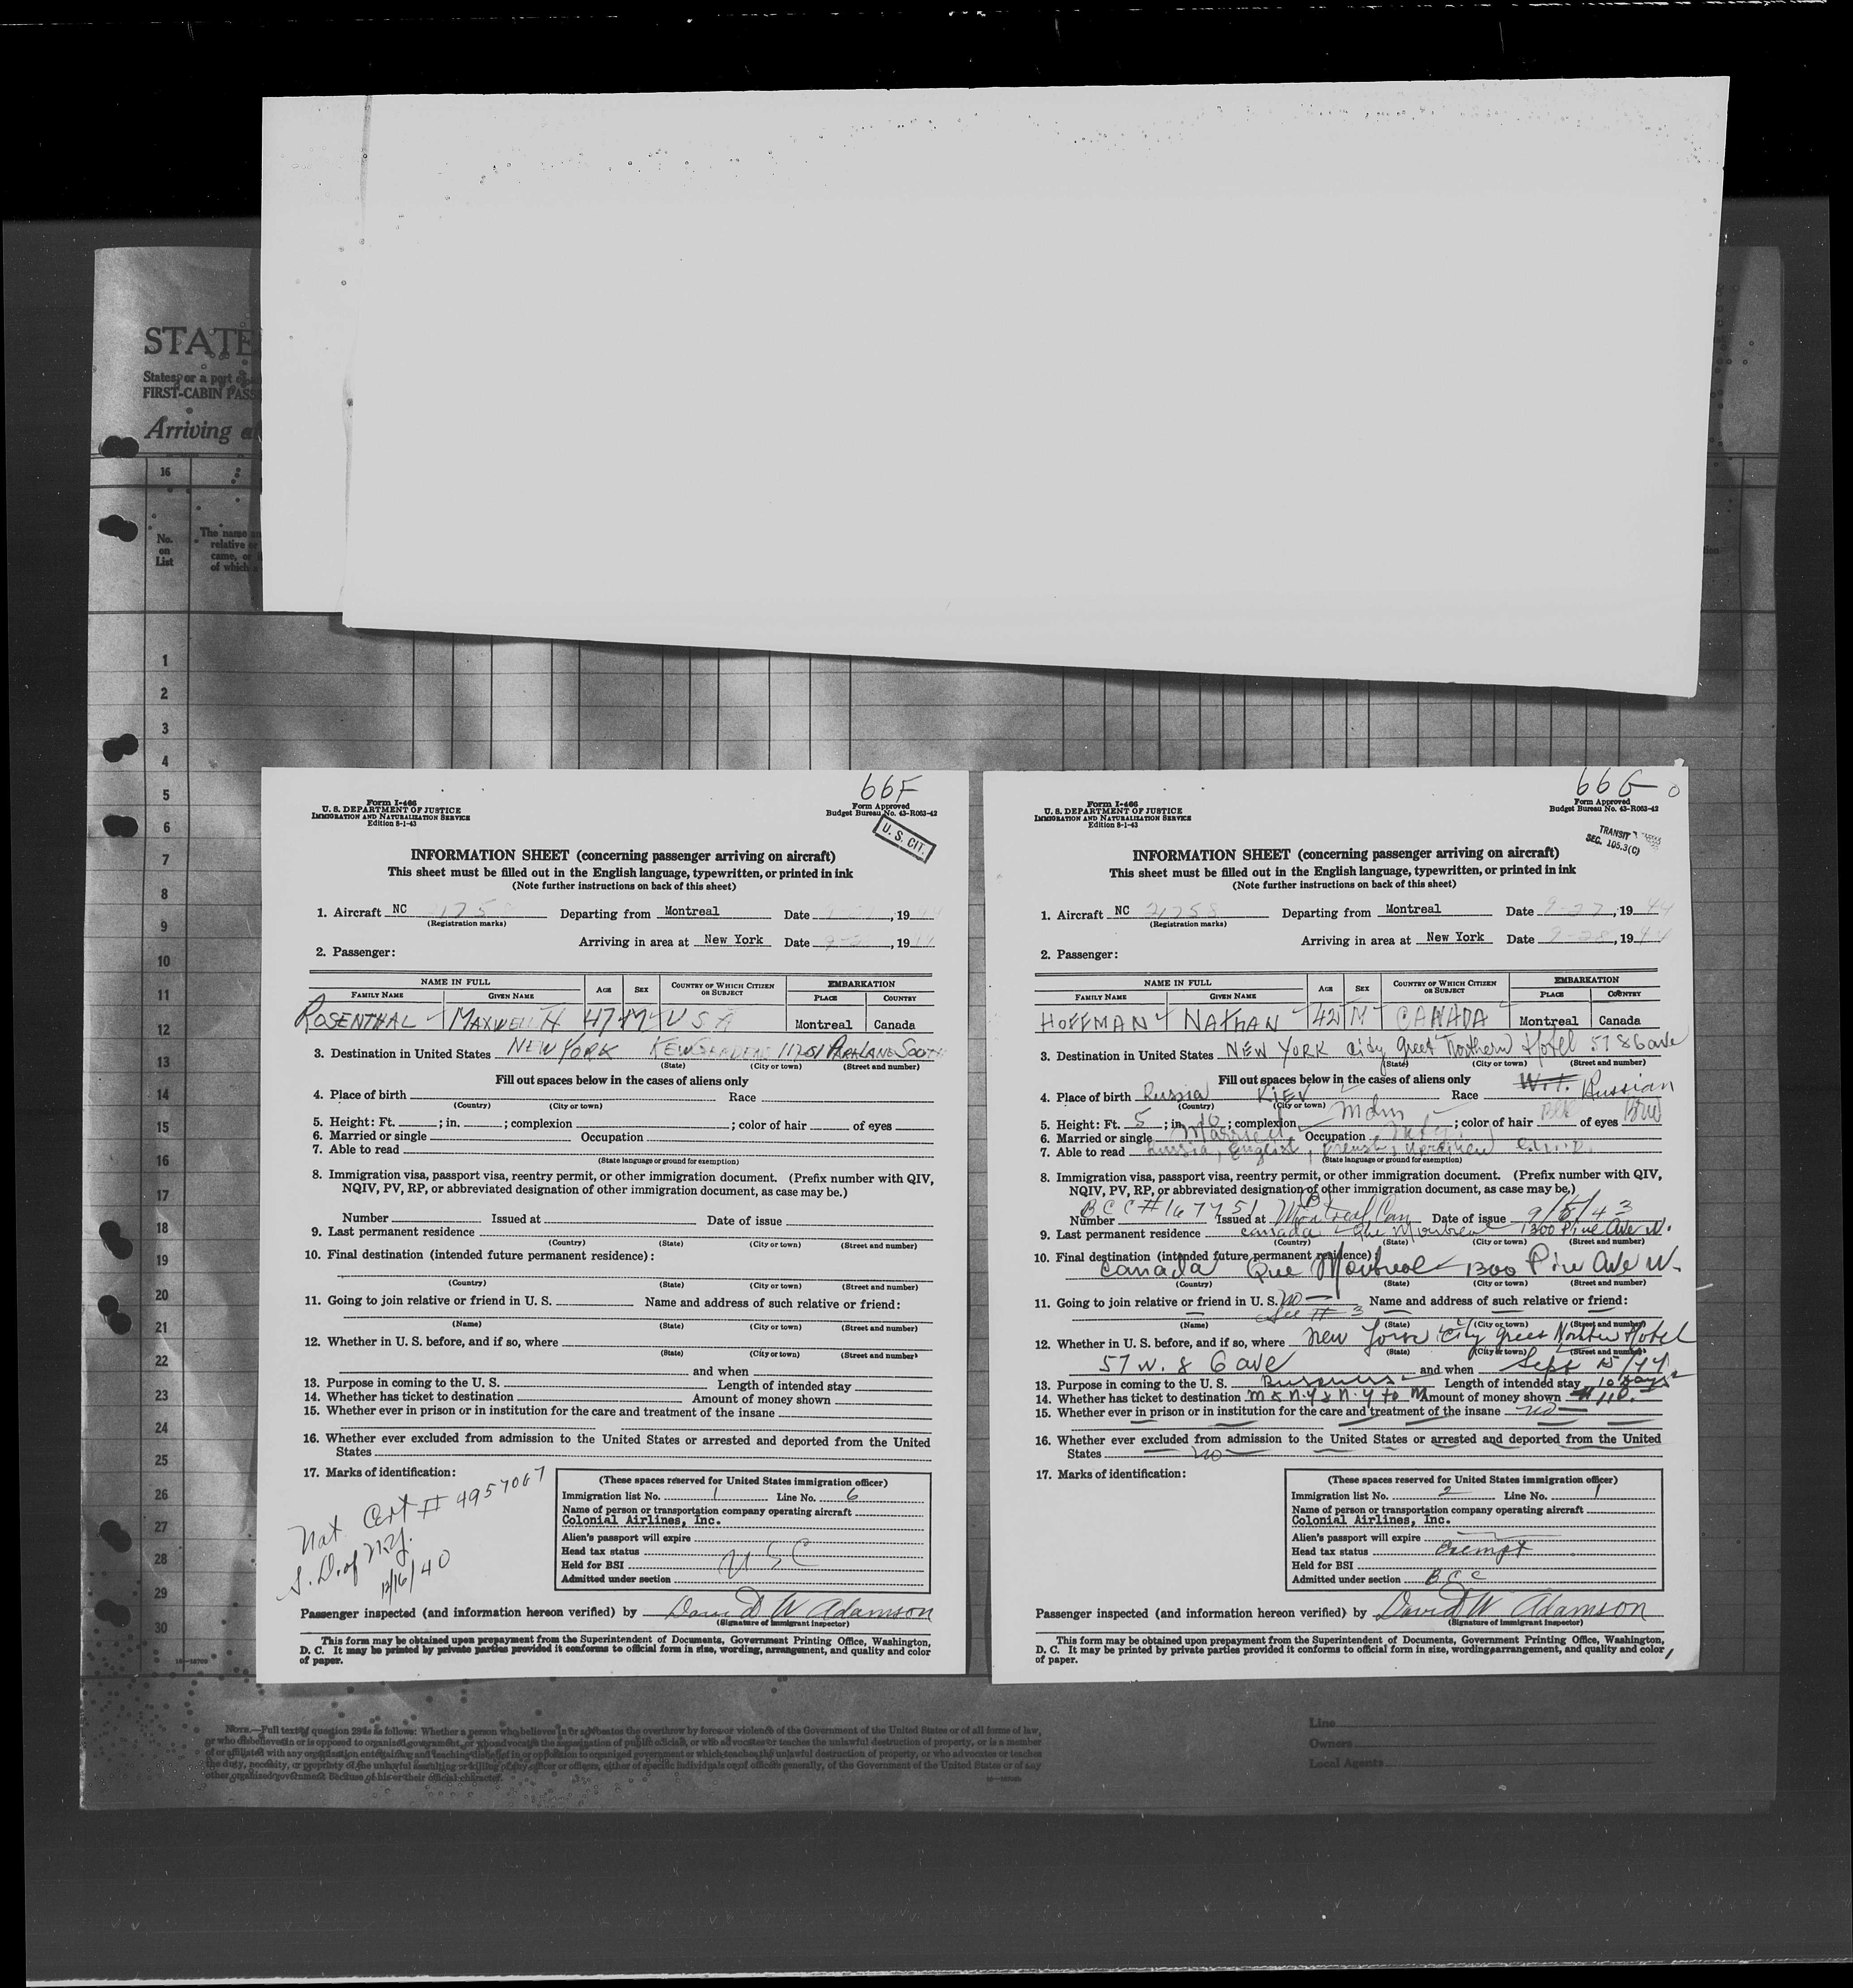 STATE
States, or a port of
FIRST-CABIN PASS
Arriving at
16
No.
on
List
The name
relative or
came, or
of which
1
2
3
4
5
6
7
8
9
10
11
12
13
14
15
16
17
18
19
20
21
22
23
24
25
26
27
28
29
30
66F
Form I-466
U. S. DEPARTMENT OF JUSTICE
IMMIGRATION AND NATURALIZATION SERVICE
Edition 8-1-43
Form Approved
Budget Bureau No. 43-R063-42
U. S. CIT.
INFORMATION SHEET (concerning passenger arriving on aircraft)
This sheet must be filled out in the English language, typewritten, or printed in ink
(Note further instructions on back of this sheet)
1. Aircraft NC 1758 Departing from Montreal Date , 19
(Registration marks)
Arriving in area at New York Date , 19
2. Passenger:
NAME IN FULL AGE SEX COUNTRY OF WHICH CITIZEN OR SUBJECT EMBARKATION
FAMILY NAME GIVEN NAME PLACE COUNTRY
ROSENTHAL MAXWELL H 47 M U S A Montreal Canada
3. Destination in United States NEW YORK KEW GARDENS PARK LANE SOUTH
(State) (City or town) (Street and number)
Fill out spaces below in the cases of aliens only
4. Place of birth Race
(Country) (City or town)
5. Height: Ft. ; in. ; complexion ; color of hair of eyes
6. Married or single Occupation
7. Able to read
(State language or ground for exemption)
8. Immigration visa, passport visa, reentry permit, or other immigration document. (Prefix number with QIV,
NQIV, PV, RP, or abbreviated designation of other immigration document, as case may be.)
Number Issued at Date of issue
9. Last permanent residence
(Country) (State) (City or town) (Street and number)
10. Final destination (intended future permanent residence):
(Country) (State) (City or town) (Street and number)
11. Going to join relative or friend in U. S. Name and address of such relative or friend:
(Name) (State) (City or town) (Street and number)
12. Whether in U. S. before, and if so, where
(State) (City or town) (Street and number)
and when
13. Purpose in coming to the U. S. Length of intended stay
14. Whether has ticket to destination Amount of money shown
15. Whether ever in prison or in institution for the care and treatment of the insane
16. Whether ever excluded from admission to the United States or arrested and deported from the United
States
17. Marks of identification:
Nat Cert # 4957067
S. D. of N.Y.
12/16/40
(These spaces reserved for United States immigration officer)
Immigration list No. 1 Line No. 6
Name of person or transportation company operating aircraft
Colonial Airlines, Inc.
Alien's passport will expire
Head tax status
Held for BSI U S C
Admitted under section
Passenger inspected (and information hereon verified) by David W Adamson
(Signature of Immigrant Inspector)
This form may be obtained upon prepayment from the Superintendent of Documents, Government Printing Office, Washington,
D. C. It may be printed by private parties provided it conforms to official form in size, wording, arrangement, and quality and color
of paper.
66G
Form I-466
U. S. DEPARTMENT OF JUSTICE
IMMIGRATION AND NATURALIZATION SERVICE
Edition 8-1-43
Form Approved
Budget Bureau No. 43-R063-42
TRANSIT
SEC. 105.3(C)
INFORMATION SHEET (concerning passenger arriving on aircraft)
This sheet must be filled out in the English language, typewritten, or printed in ink
(Note further instructions on back of this sheet)
1. Aircraft NC 21758 Departing from Montreal Date 9-27, 19 44
(Registration marks)
Arriving in area at New York Date 9-28, 19 44
2. Passenger:
NAME IN FULL AGE SEX COUNTRY OF WHICH CITIZEN OR SUBJECT EMBARKATION
FAMILY NAME GIVEN NAME PLACE COUNTRY
HOFFMAN NATHAN 42 M CANADA Montreal Canada
3. Destination in United States NEW YORK City Greet Northern Hotel 57 & 6 ave
(State) (City or town) (Street and number)
Fill out spaces below in the cases of aliens only
4. Place of birth Russia KIEV Race Russian
(Country) (City or town)
5. Height: Ft. 5 ; in. 10 ; complexion Mdm ; color of hair Blk of eyes Brw
6. Married or single Married Occupation
7. Able to read Russia, English, French,
(State language or ground for exemption)
8. Immigration visa, passport visa, reentry permit, or other immigration document. (Prefix number with QIV,
NQIV, PV, RP, or abbreviated designation of other immigration document, as case may be.)
Number BCC # 167751 Issued at Montreal Can Date of issue 9/5/43
9. Last permanent residence Canada Que Montreal 1300 Pine Ave W.
(Country) (State) (City or town) (Street and number)
10. Final destination (intended future permanent residence):
Canada Que Montreal 1300 Pine Ave W.
(Country) (State) (City or town) (Street and number)
11. Going to join relative or friend in U. S. No Name and address of such relative or friend:
See # 3
(Name) (State) (City or town) (Street and number)
12. Whether in U. S. before, and if so, where New York City Greet Northern Hotel
(State) (City or town) (Street and number)
57 W. & 6 ave and when Sept 15/44
13. Purpose in coming to the U. S. Business Length of intended stay 10 days
14. Whether has ticket to destination M & N.Y & N.Y to M Amount of money shown $110.
15. Whether ever in prison or in institution for the care and treatment of the insane no
16. Whether ever excluded from admission to the United States or arrested and deported from the United
States no
17. Marks of identification:
(These spaces reserved for United States immigration officer)
Immigration list No. 2 Line No. 1
Name of person or transportation company operating aircraft
Colonial Airlines, Inc.
Alien's passport will expire
Head tax status Exempt
Held for BSI
Admitted under section B C C
Passenger inspected (and information hereon verified) by David W Adamson
(Signature of Immigrant Inspector)
This form may be obtained upon prepayment from the Superintendent of Documents, Government Printing Office, Washington,
D. C. It may be printed by private parties provided it conforms to official form in size, wording, arrangement, and quality and color
of paper.
NOTE.—Full text of question 29 is as follows: Whether a person who believes in or advocates the overthrow by force or violence of the Government of the United States or of all forms of law,
or who disbelieves in or is opposed to organized government, or who advocates the assassination of public officials, or who advocates or teaches the unlawful destruction of property, or is a member
of or affiliated with any organization entertaining and teaching disbelief in or opposition to organized government or which teaches the unlawful destruction of property, or who advocates or teaches
the duty, necessity, or propriety of the unlawful assaulting or killing of any officer or officers, either of specific individuals or of officers generally, of the Government of the United States or of any
other organized government because of his or their official character.
Line
Owners
Local Agents